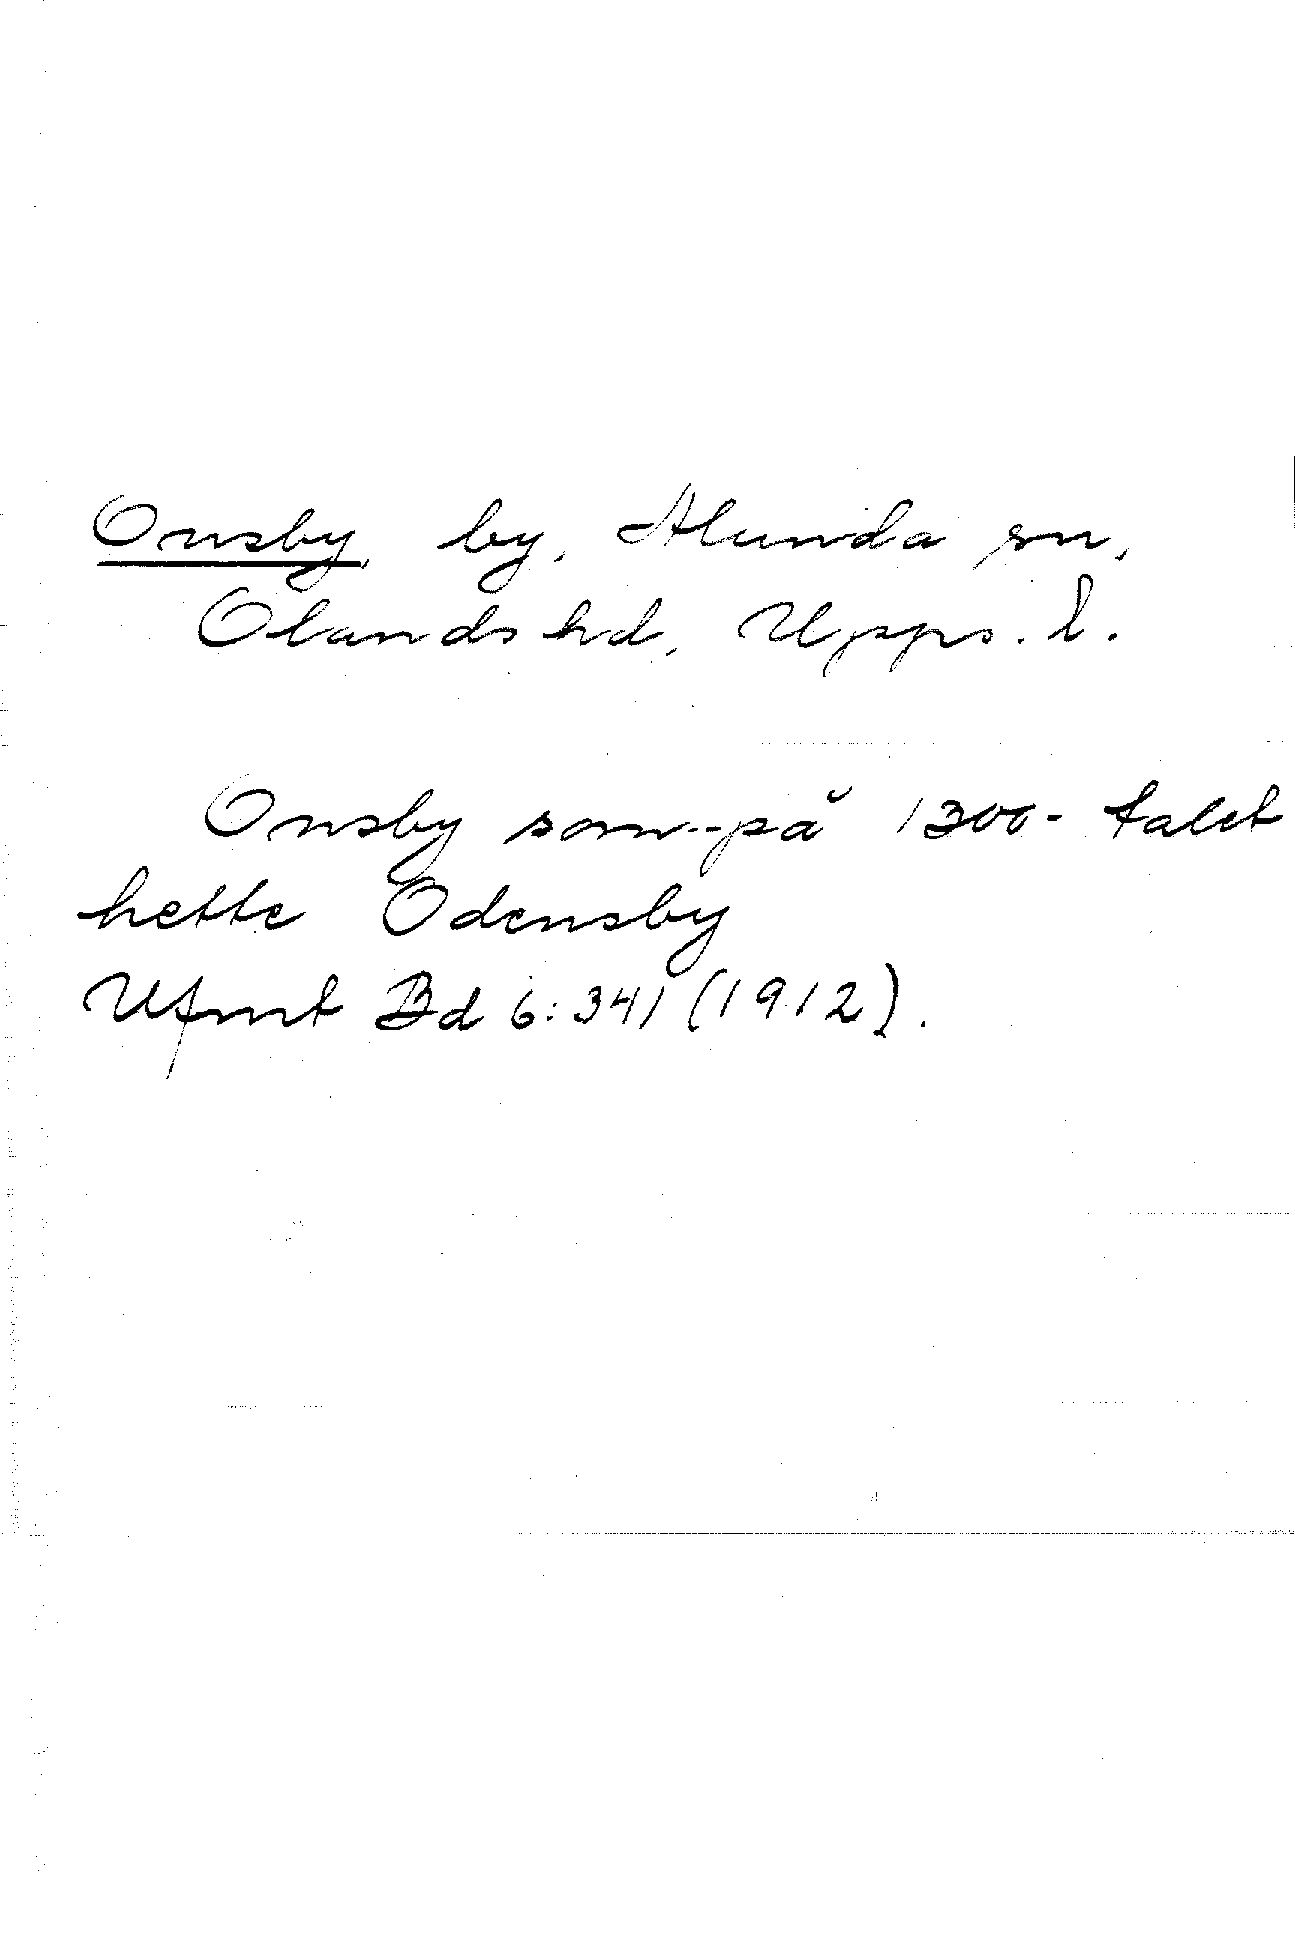 Onsby, by, Alunda sn,
Olands hd, Upps. l.
Onsby som på 1300-talet
hette Odensby
Ufmt Bd 6:341 (1912).